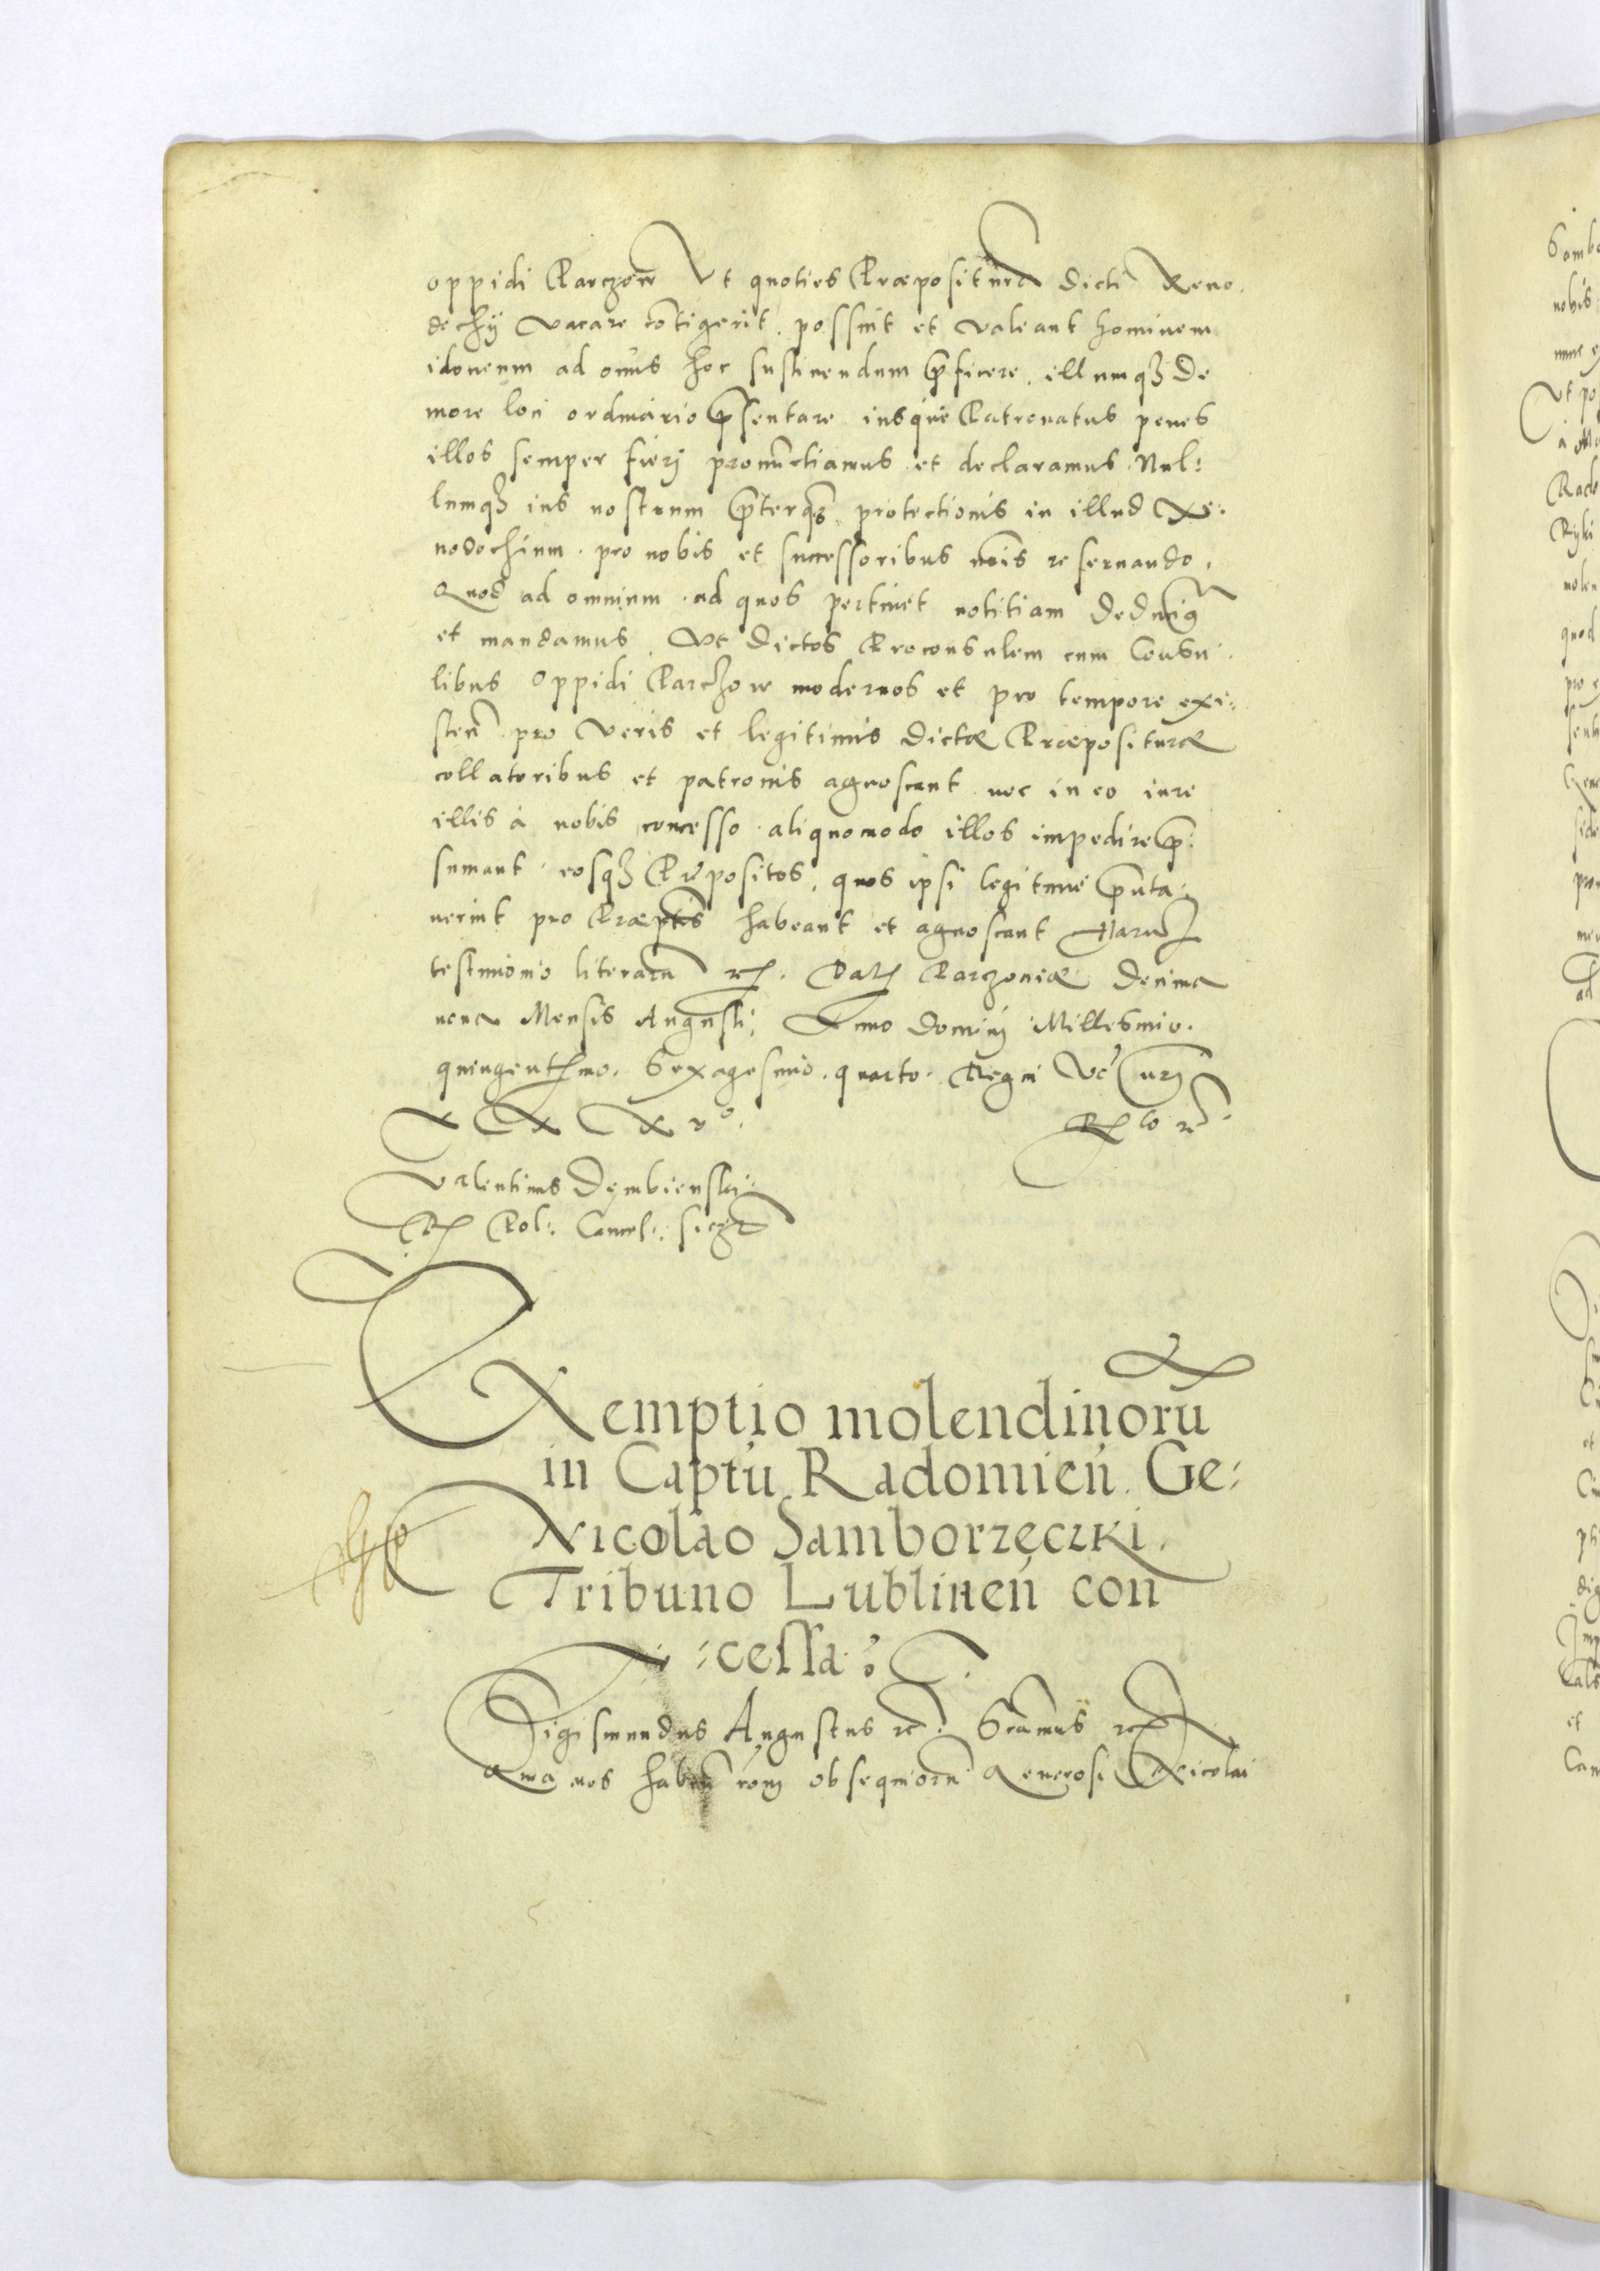 oppidi Parczow Ut quoties Præpositura dicti Xeno.
dochÿ vacare cōtigerit, possint et valeant hominem
idoneum ad onus hoc sustinendum p̄ficere, illumqꝫ de
more loci ordinario p̄sentare iusque Patronatus penes
illos semper fierj pronūctiamus et declaramus. Nul:
lumqꝫ ius nostrum p̄terqȝ protectionis in illud Xe:
nodochium pro nobis et successoribus nr̄is reseruando.
Quod ad omnium ad quos pertinet notitiam
et mandamus. Ut dictos Proconsulem cum Consu:
libus Oppidi Parczow modernos et pro tempore exi:
steñ pro veris et legitimis dictæ Præposituræ
collatoribus et patronis agnoscant nec in eo iure
illis à nobis concesso aliquomodo illos impedire p̄:
sumant eosqꝫ Præpositos, quos ipsi legitime p̄nta:
uerint pro Præptis habeant et agnoscant Harū
testimonio literarū rc̄. Datȝ Parczoniæ Decima
nona Mensis Augusti, Anno Dominj Millesimo.
quingentmo. Sexagesimo. quarto. Regni vō nr̄j
XXXVo.
Valentinus Dembienskj
R Pol: Cancel: sszt
Exemptio molendinorū
in Captū Radomień. Ge:
Nicolao Samborzęczki.
Tribuno Lublineń con
:cessa:
Sigismundus Augustus rc̄. Scimus rc̄
Quia nos habeñ rōnj obsequiorū Generosi Nicolai